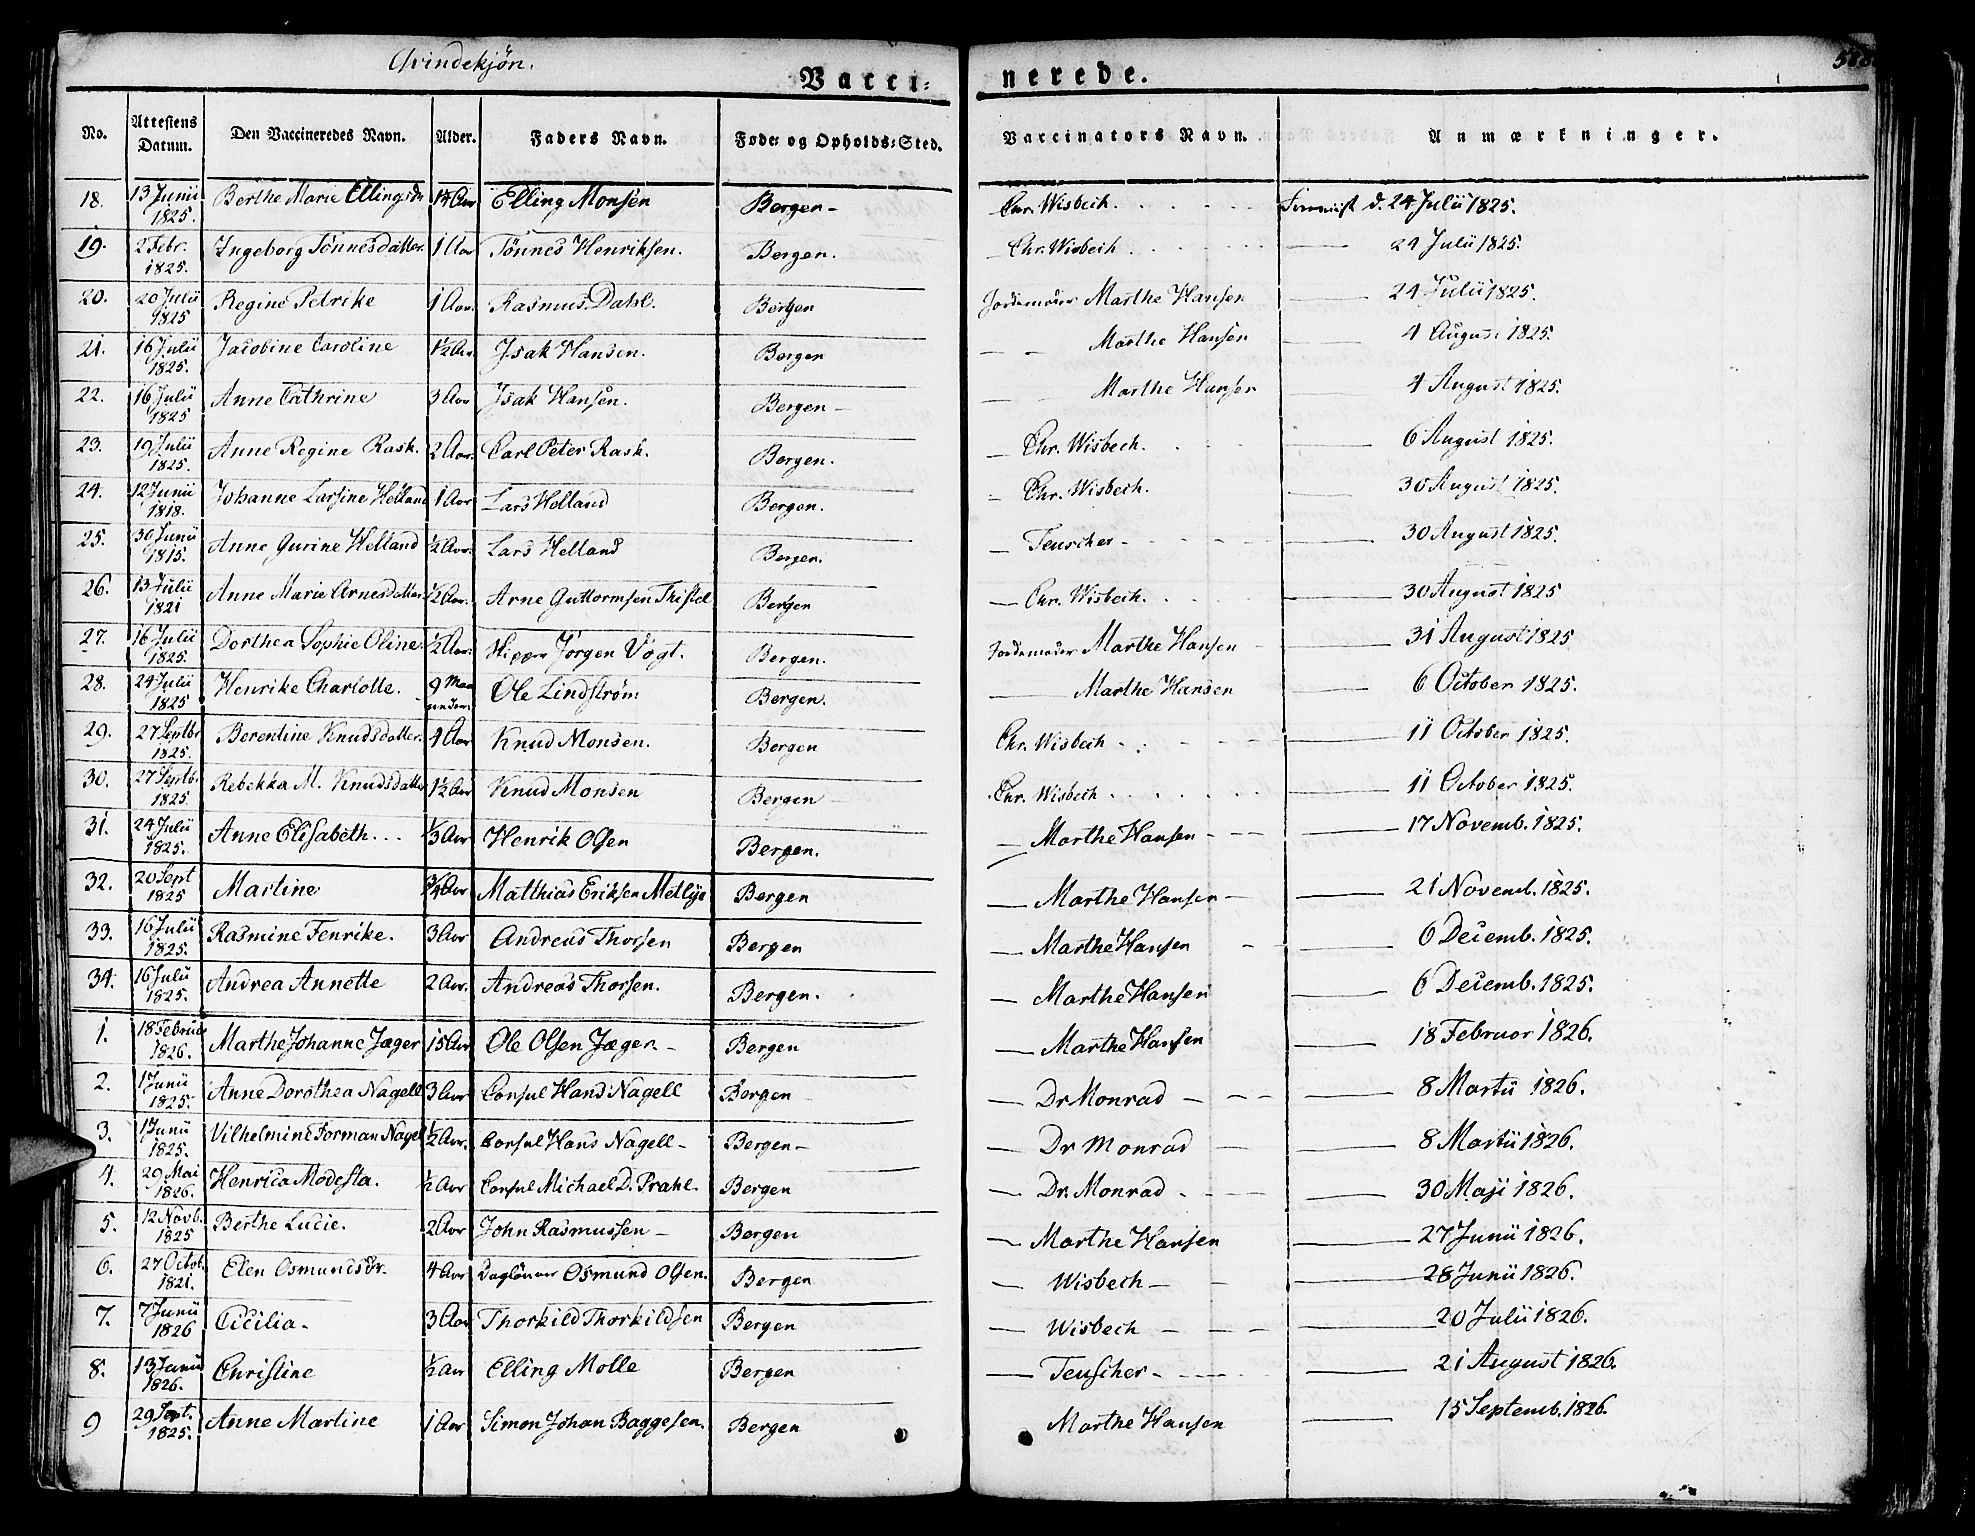 Qvindekjön.
Vacci- nerede.
No. Attestens Datum. Den Vaccineredes Navn. Alder. Faders Navn. Føde- og Opholds-Sted. Vaccinators Navn. Anmærkninger.
18. 13 Junii 1825. Berthe Marie Ellingsdr 1½ Aar Elling Monsen Bergen- Chr. Wisbech. d. 24 Julii 1825.
19. 2 Febr. 1825. Ingeborg Tönnesdatter. 1 Aar Tönnes Henriksen. Bergen. — Chr. Wisbech — 24 Julii 1825.
20. 20 Julii 1825 Regine Petrike 1 Aar. Rasmus Dahl. Bergen Jordemoder Marthe Hansen — 24 Julii 1825.
21. 16 Julii 1825. Jacobine Caroline 1½ Aar. Isak Hansen. Bergen — — Marthe Hansen — 4 August 1825.
22. 16 Julii 1825 Anne Cathrine 3 Aar Isak Hansen. Bergen- — — Marthe Hansen — 4 August 1825.
23. 19 Julii 1825. Anne Regine Rask. 2 Aar. Carl Peter Rask. Bergen. — Chr. Wisbech. — 6 August 1825.
24. 12 Junii 1818. Johanne Larsine Helland 1 Aar Lars Helland Bergen. — Chr. Wisbech. — 30 August 1825.
25. 30 Junii 1815. Anne Gurine Helland ½ Aar. Lars Helland Bergen. — Teuscher — 30 August 1825.
26. 13 Julii 1821 Anne Marie Arnesdatter ½ Aar. Arne Guttormsen Thistel Bergen — Chr. Wisbech. — 30 August 1825
27. 16 Julii 1825. Dorthea Sophie Oline. ½ Aar. Skipper Jörgen Vogt. Bergen. Jordemoder Marthe Hansen — 31 August 1825
28. 24 Julii 1825 Henrike Charlotte. 9 Maaneder. Ole Lindström Bergen. — Marthe Hansen — 6 October 1825.
29. 27 Septbr 1825. Berentine Knudsdatter. 4 Aar Knud Monsen. Bergen Chr. Wisbech — 11 October 1825.
30. 27 Septb. 1825. Rebekka M. Knudsdatter 1½ Aar Knud Monsen Bergen Chr. Wisbech — 11 October 1825.
31. 24 Julii 1825. Anne Elisabeth. ⅓ Aar Henrik Olsen Bergen. — Marthe Hansen — 17 Novemb. 1825.
32. 20 Sept 1825 Martine ¾ Aar Matthias Eriksen Bergen — Marthe Hansen — 21 Novemb. 1825.
33. 16 Julii 1825. Rasmine Fenrike. 3 Aar Andreas Thorsen Bergen — Marthe Hansen — 6 Decemb. 1825.
34. 16 Julii 1825. Andrea Annette 2 Aar. Andreas Thorsen. Bergen. — Marthe Hansen — 6 Decemb. 1825.
1. 18 Februar 1826. Marthe Johanne Jæger 15 Aar Ole Olsen Jæger. Bergen — Marthe Hansen — 18 Februar 1826.
2. 1 Junii 1825. Anne Dorothea Nagell 3 Aar Consul Hans Nagell Bergen — Dr Monrad — 8 Martii 1826.
3. 1 Junii 1825. Vilhelmine Forman Nagell ½ Aar. Consul Hans Nagell- Bergen- — Dr Monrad — 8 Martii 1826.
4. 29 Mai 1826. Henrica Modesta. ½ Aar Consul Michael D. Prahl. Bergen — Dr. Monrad — 30 Maji 1826.
5. 12 Novb. 1825 Berthe Lucie. 2 Aar John Rasmussen- Bergen — Marthe Hansen — 27 Junii 1826.
6. 27 Octob. 1821. Elen Osmundsdr. 4 Aar Daglönner Osmund Olsen. Bergen — Wisbech — 28 Junii 1826.
7. 7 Junii 1826 Cicilia. 3 Aar Thorkild Thorkildsen Bergen — Wisbech — 20 Julii 1826.
8. 13 Junii 1826. Christine ½ Aar Elling Molle Bergen — Teuscher — 21 August 1826.
9 29 Sept. 1825. Anne Martine 1 Aar Simon Johan Baggesen. Bergen Marthe Hansen — 15 Septemb. 1826.